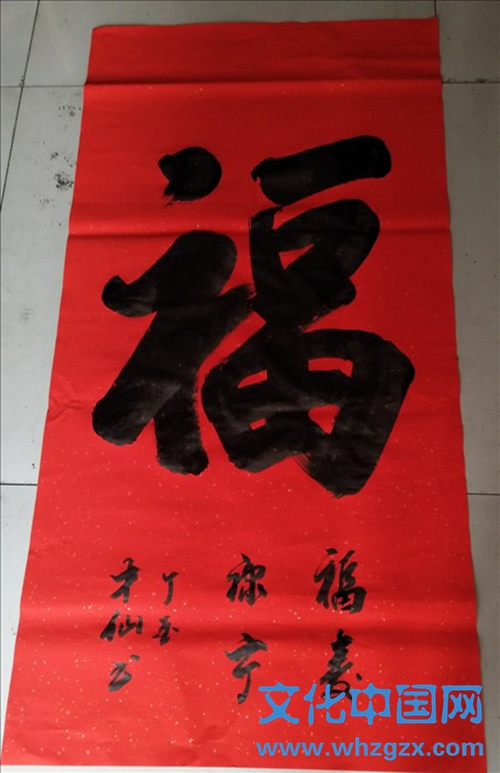 福
福寿
康宁
丁
才仙书
文化中国网
www.whzgzx.com